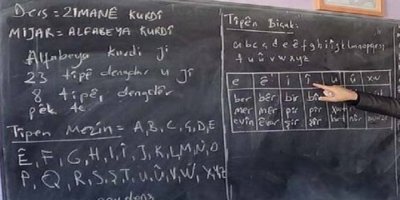 Ders = ZIMANÊ KURDÎ
MIJAR = ALFABEYA KURDÎ
Alfabeya kurdî ji
23 tipê dengdar û ji
8 tipê, dengdêr
pêk tê
Tîpên Mezin = A, B, C, Ç, D, E
Ê, F, G, H, I, Î, J, K, L, M, N, O
P, Q, R, S, Ş, T, U, Û, V, W, X, Y, Z
Tîpên Biçûk:
a b c ç d e ê f g h i î j k l m n o p q r s ş
t u û v w x y z
e ê i î u û xw
ber bêr bir
mer mêr pir pîr
evîn êvar jir jîr